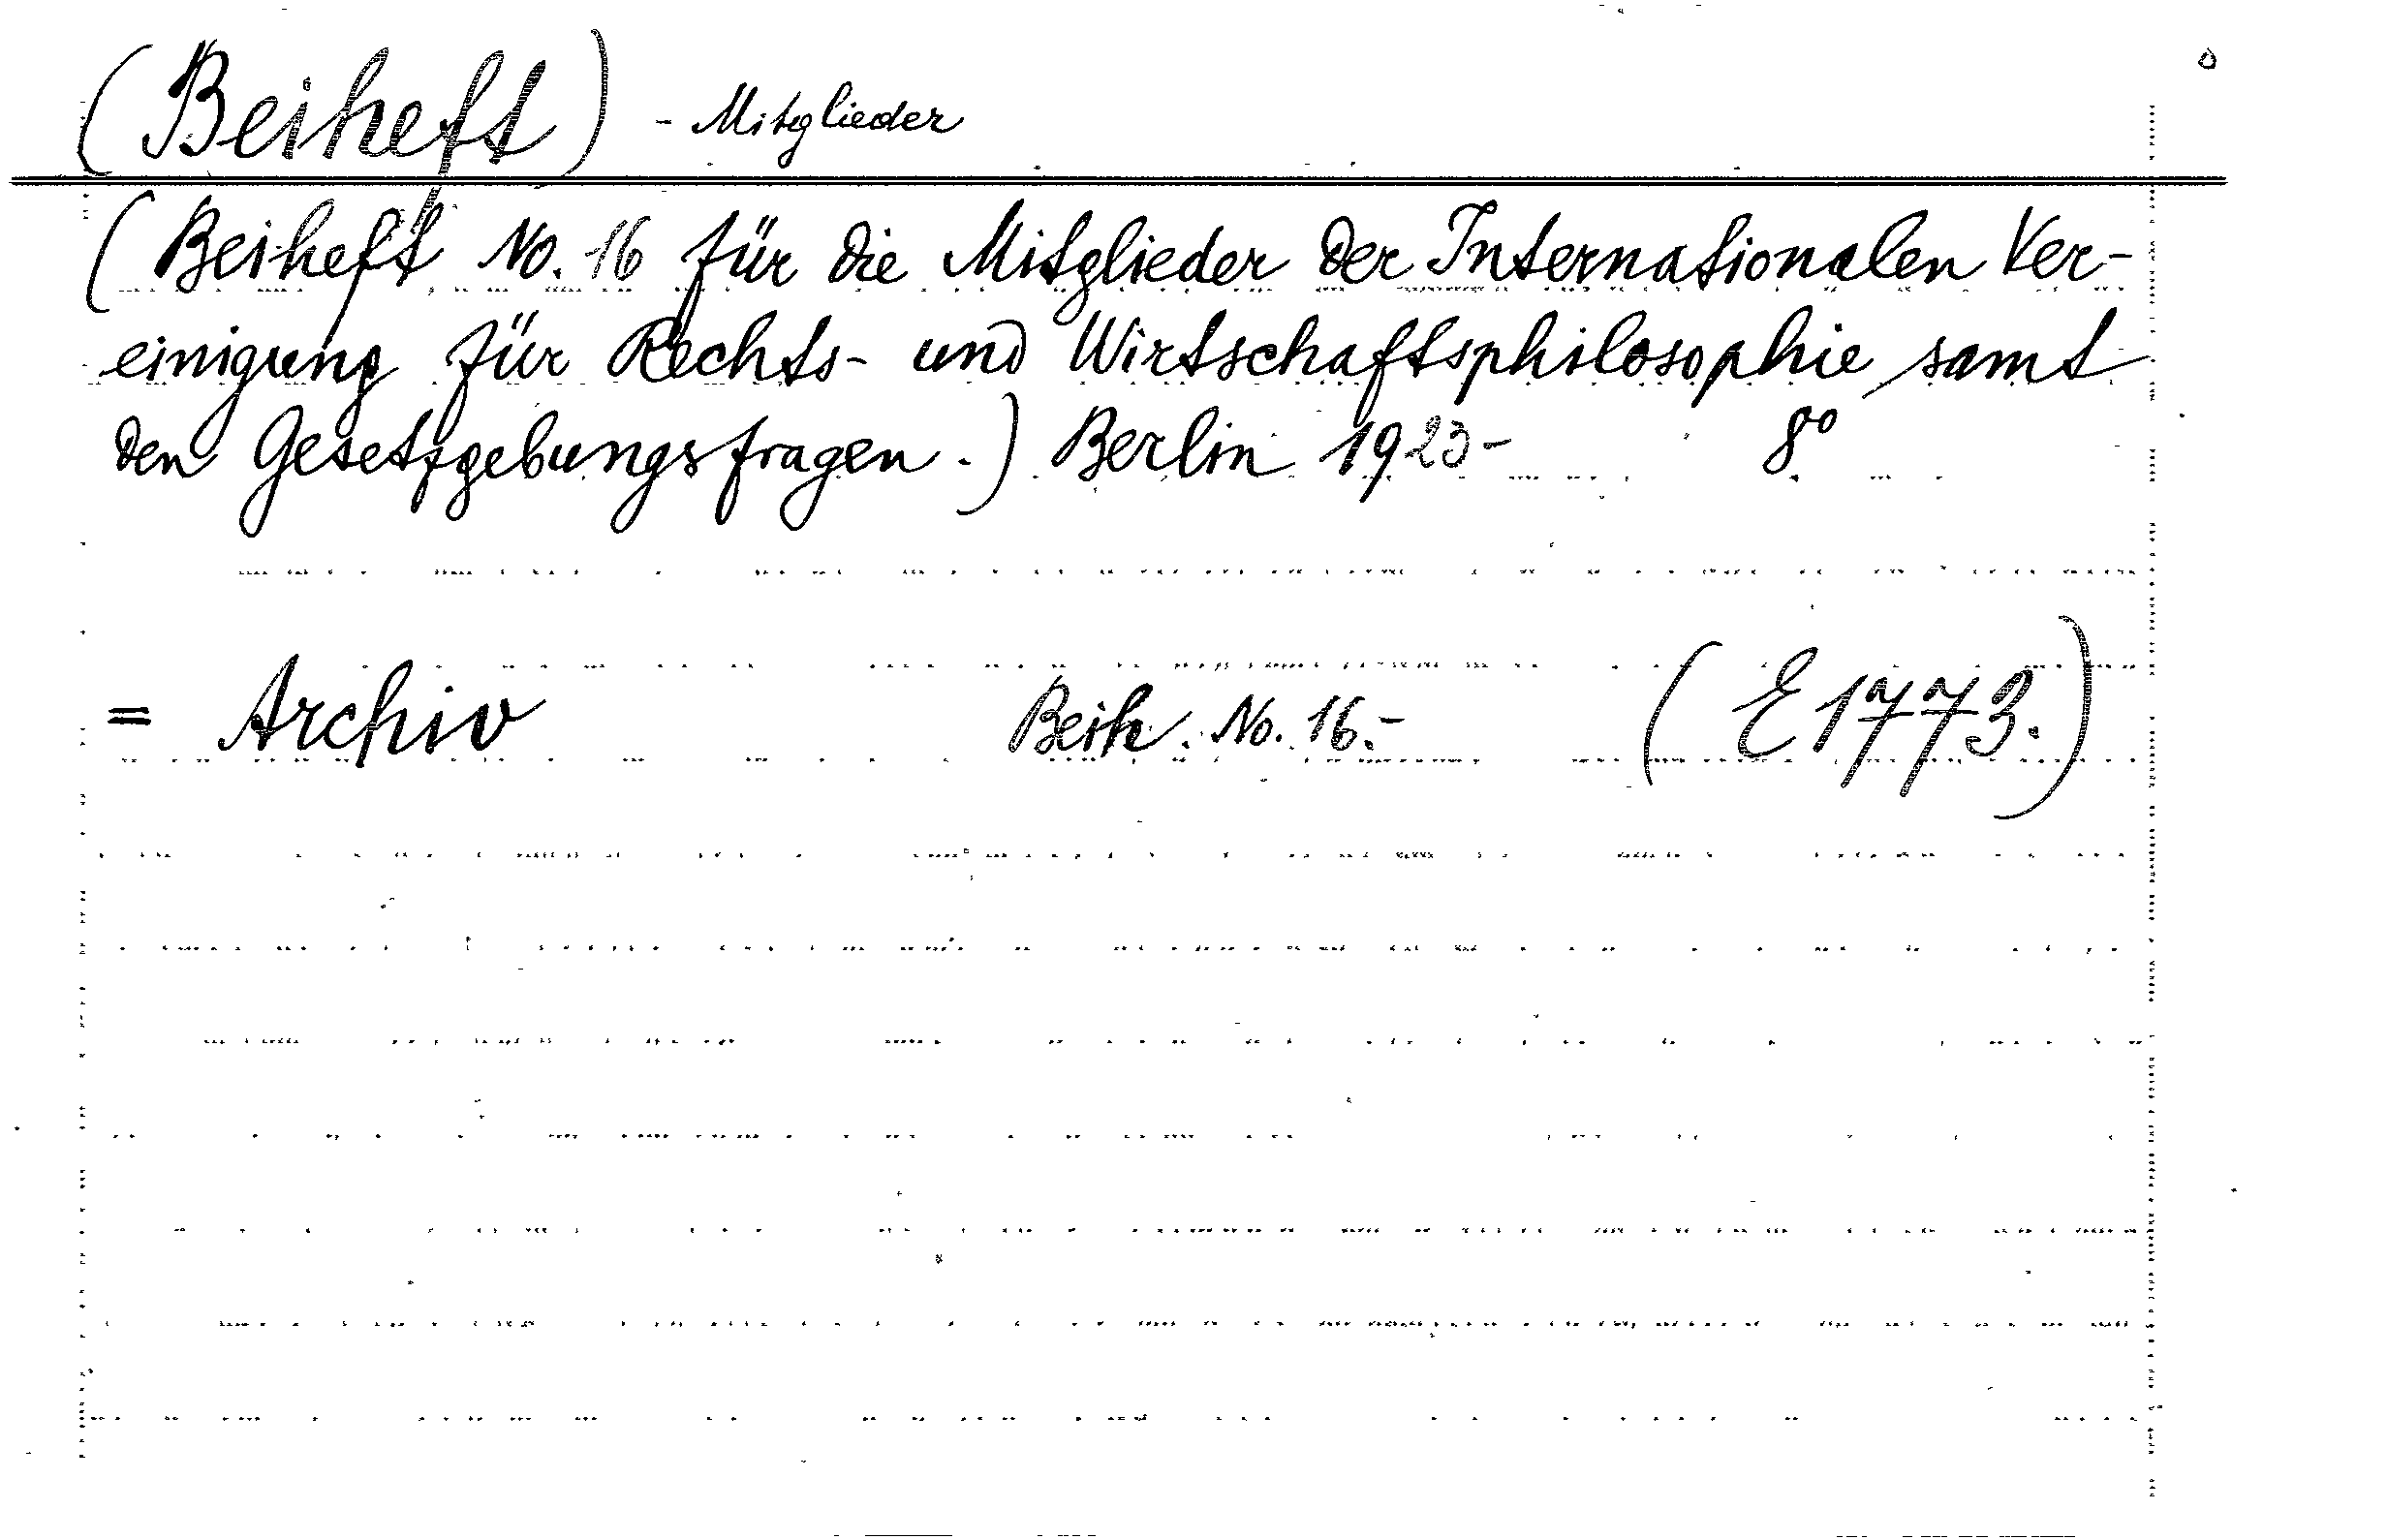 (Beiheft) - Mitglieder
(Beiheft No. 16 für die Mitglieder der Internationalen Ver-
einigung für Rechts- und Wirtschaftsphilosophie samt
den Gesetzgebungsfragen.) Berlin 1923- 8°
= Archiv Beih. No. 16.- (E 1773.)